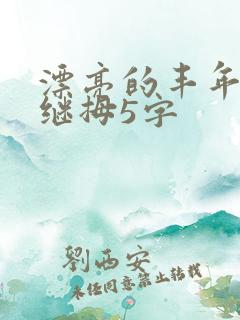 漂亮的丰年
继拇5字
劉西安
未经同意禁止转载